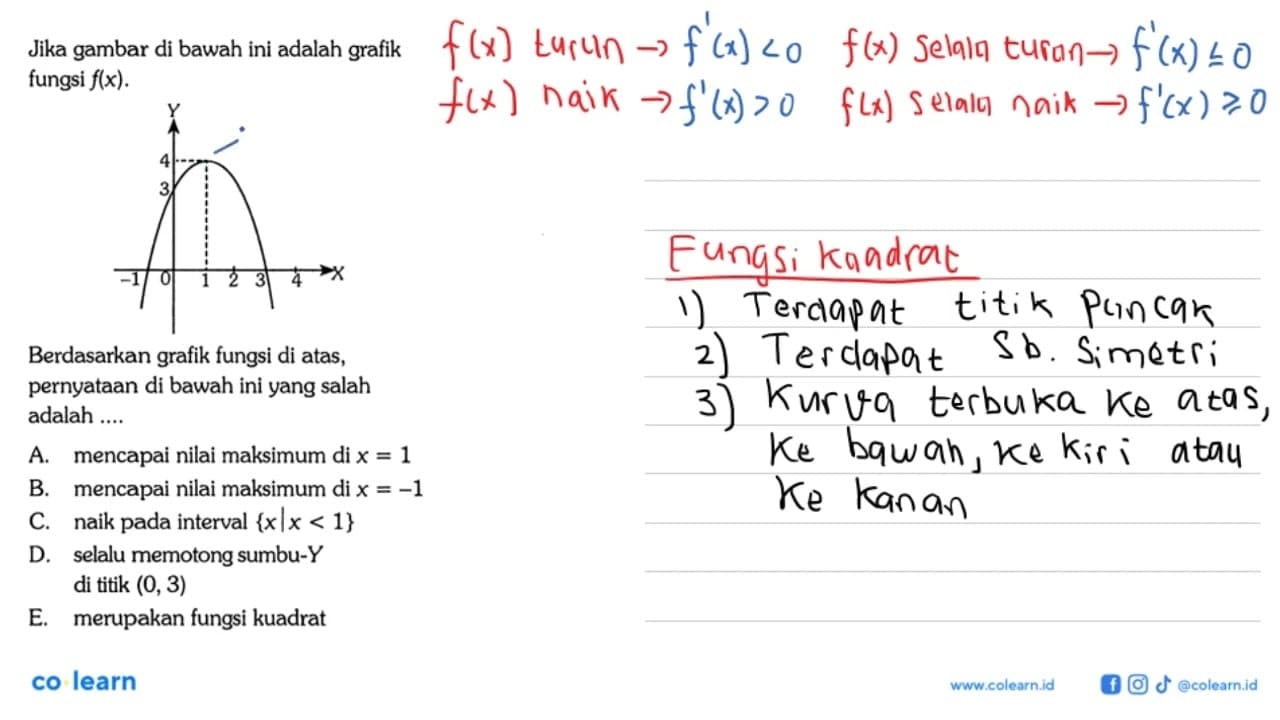 Jika gambar di bawah ini adalah grafik
fungsi f(x).
Y
4
3
-1 0 1 2 3 4 X
Berdasarkan grafik fungsi di atas,
pernyataan di bawah ini yang salah
adalah ....
A. mencapai nilai maksimum di x = 1
B. mencapai nilai maksimum di x = -1
C. naik pada interval {x|x < 1}
D. selalu memotong sumbu-Y
di titik (0, 3)
E. merupakan fungsi kuadrat
f(x) turun → f'(x) < 0 f(x) selalu turun → f'(x) ≤ 0
f(x) naik → f'(x) > 0 f(x) selalu naik → f'(x) ≥ 0
Fungsi kuadrat
1) Terdapat titik puncak
2) Terdapat Sb. Simetri
3) Kurva terbuka ke atas,
ke bawah, ke kiri atau
ke kanan
co learn
www.colearn.id @colearn.id